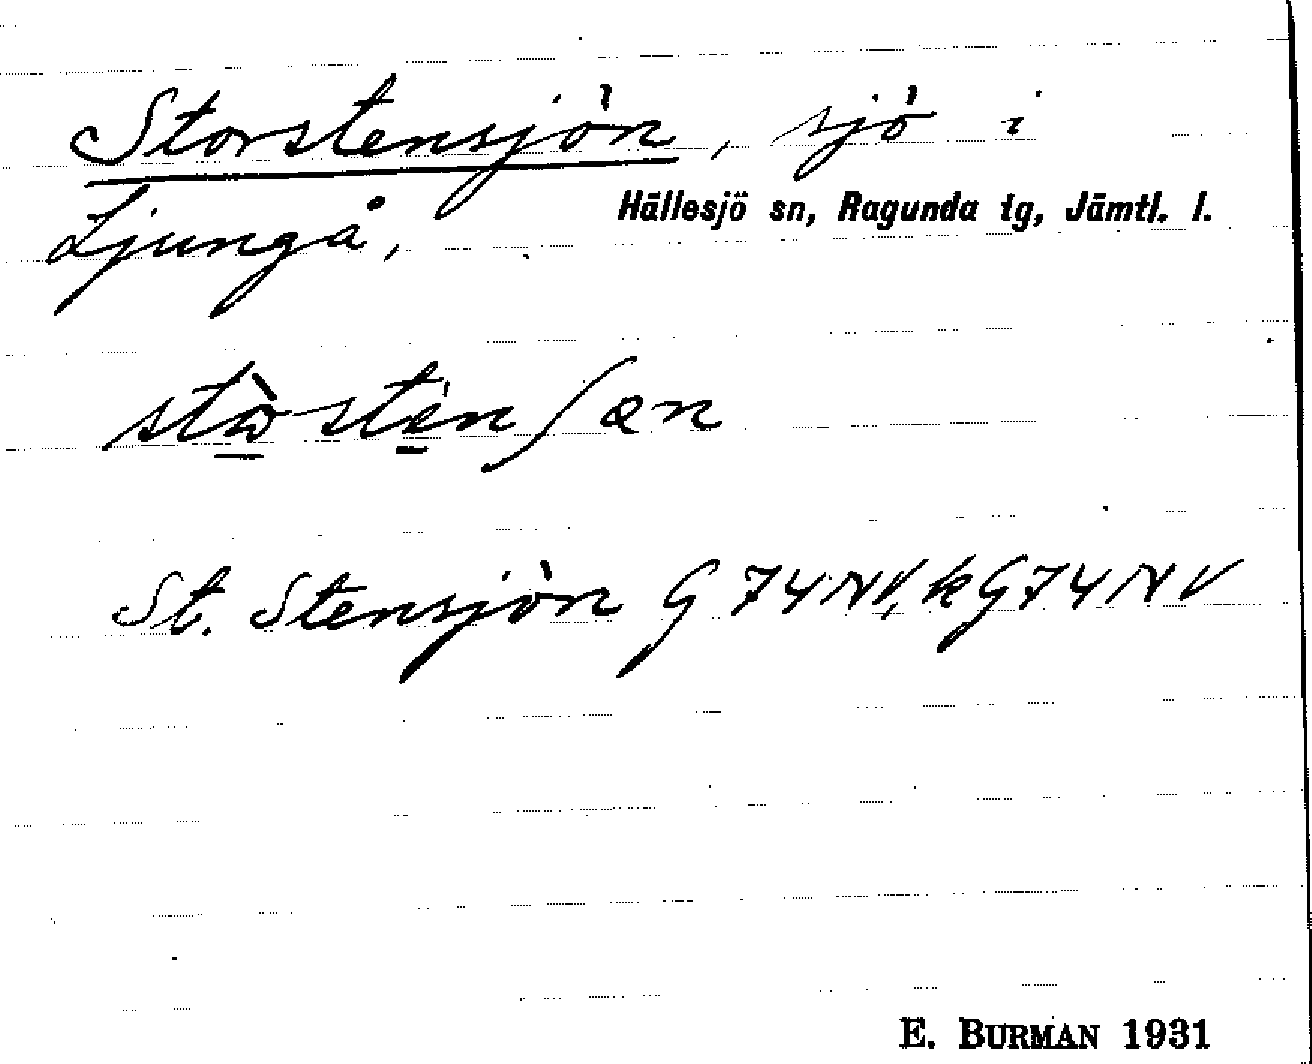 Storstensjön, sjö i
Ljungå, Hällesjö sn, Ragunda tg, Jämtl. l.
St. Stensjön G 74 NV, k G 74 NV
E. BURMAN 1931